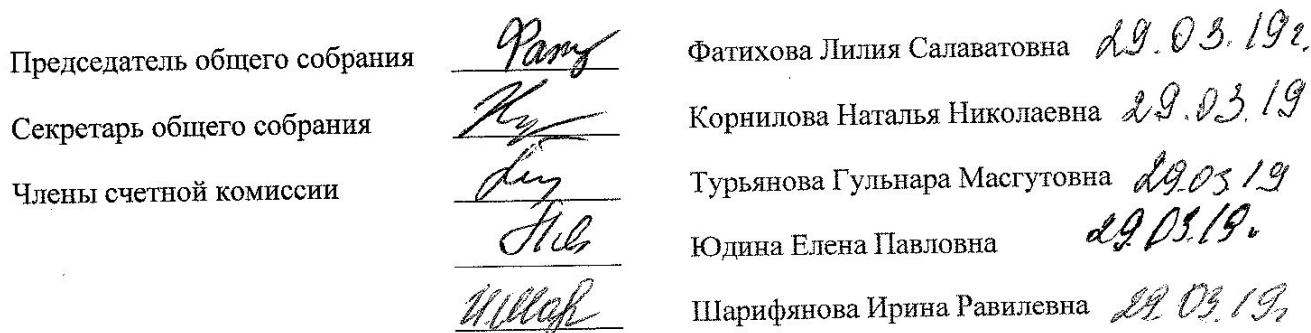 Председатель общего собрания Фатихова Лилия Салаватовна 29.03.19г.
Секретарь общего собрания Корнилова Наталья Николаевна 29.03.19
Члены счетной комиссии Турьянова Гульнара Масгутовна 29.03.19
Юдина Елена Павловна 29.03.19г
Шарифянова Ирина Равилевна 29.03.19г